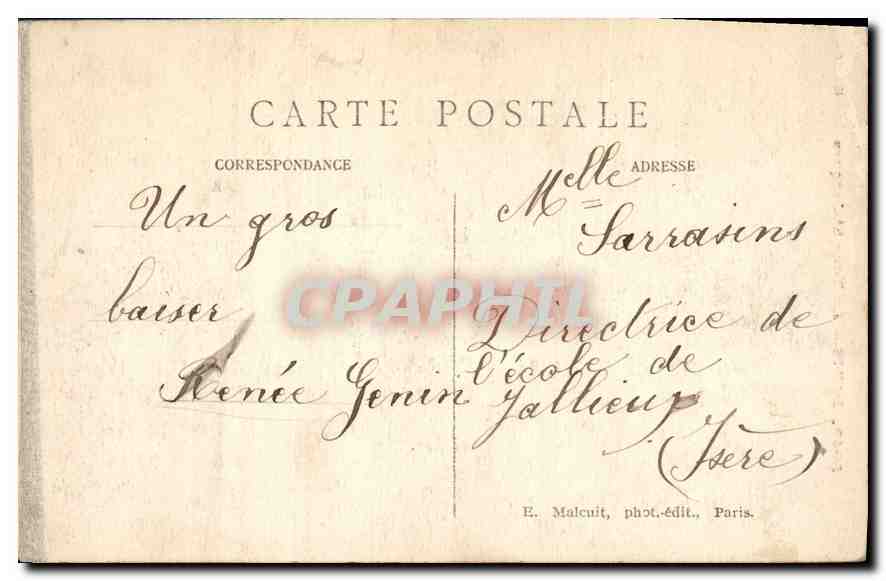 CARTE POSTALE
CORRESPONDANCE
Un gros
baiser
Renée Genin
ADRESSE
Melle
Sarrasins
Directrice de
l'école de
Jallieux
(Isère)
E. Malcuit, phot.-édit., Paris.
CPAPHIL